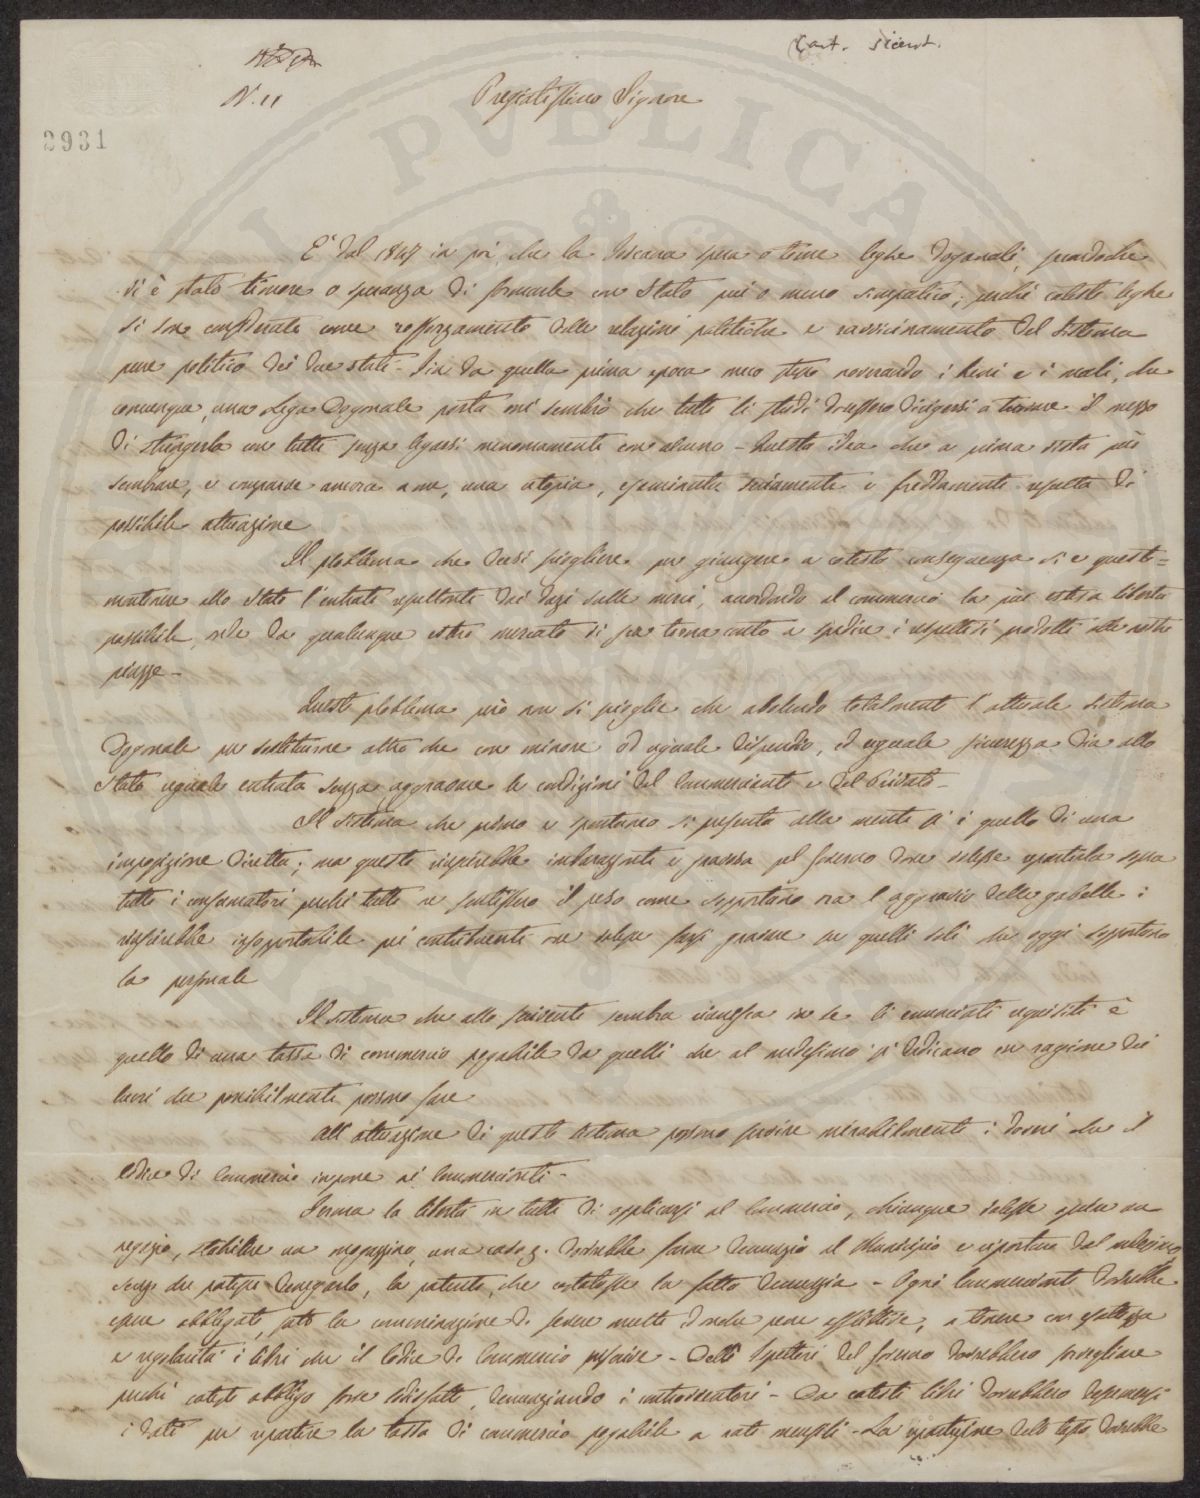 Cart. Vicent.
N. 11
Pregiatissimo Signore
2931
I PVBLICA
È dal 1847 in poi che la Toscana spera o teme leghe doganali, secondoche
vi è stato timore o speranza di formarle con Stato più o meno simpatico; perché coteste leghe
si son considerate come rafforzamento delle relazioni politiche e ravvicinamento del sistema
pure politico dei due stati - Sin da quella prima epoca meco stesso noverando i beni e i mali, che
comunque una Lega Doganale porta mi sembrò che tutti li studi dovessero dirigersi a trovare il mezzo
di stringerla con tutti senza legarsi menomamente con alcuno - Questa idea che a prima vista può
sembrare, e comparve ancora a me, una utopia, esaminata seriamente e freddamente resulta di
possibile attuazione
Il problema che devesi sciogliere per giungere a cotesta conseguenza si è questo =
mantenere allo Stato l'entrata resultante dai dazi sulle merci, accordando al commercio la più estesa libertà
possibile, onde da qualunque estero mercato si torna conto a spedire i respettivi prodotti alle nostre
piazze -
Questo problema però non si scioglie che abolendo totalmente l'attuale sistema
Doganale per sostituirne altro che con minore od uguale dispendio, ed uguale sicurezza dia allo
Stato uguale entrata senza aggravare le condizioni del Commerciante e del Privato -
Il sistema che primo e spontaneo si presenta alla mente si è quello di una
imposizione diretta; ma questa riuscirebbe imbarazzante e gravosa pel Governo dove volesse repartirla sopra
tutti i consumatori perché tutti ne sentissero il peso come sopportano ora l'aggravio delle gabelle:
riuscirebbe insopportabile pei contribuenti ove volesse farsi gravare su quelli soli che oggi sopportano
la personale
Il sistema che allo scrivente sembra riunisca in se li enunciati requisiti è
quello di una tassa di commercio pagabile da quelli che al medesimo si dedicano in ragione dei
lucri che possibilmente possono fare
All'attuazione di questo sistema possono servire mirabilmente i doveri che il
Codice di Commercio impone ai Commercianti -
Ferma la libertà in tutti di applicarsi al Commercio, chiunque volesse aprire un
negozio, stabilire un magazzino, una casa &. dovrebbe farne denunzia al Municipio e riportare dal medesimo
senza che potesse denegarlo, la patente, che constatasse la fatta denunzia - Ogni Commerciante dovrebbe
essere obbligato, sotto la comminazione di severe multe ed anche pene afflittive, a tenere con esattezza
e regolarità i libri che il Codice di Commercio prescrive - Delli Ispettori del Governo dovrebbero sorvegliare
perché cotesto obbligo fosse sodisfatto, denunziando i contravventori - Da cotesti libri dovrebbero desumersi
i dati per repartire la tassa di commercio pagabile a rate mensili - La repartizione della tassa dovrebbe